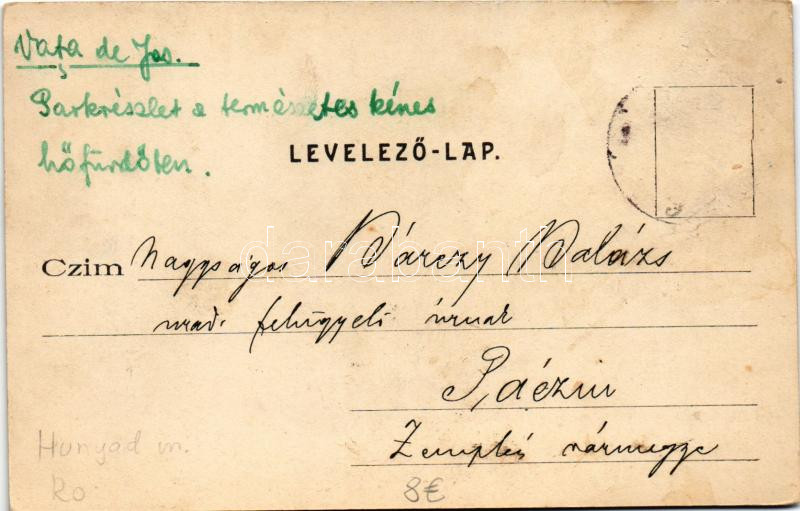 Vața de Jos.
Parkrészlet a természetes kénes
hőfürdőben.
LEVELEZŐ-LAP.
Czim Nagyságos Várczy Balázs
urad. felügyelő úrnak
Páczin
Zemplén vármegye
Hunyad m.
Ro
8€
darabanth